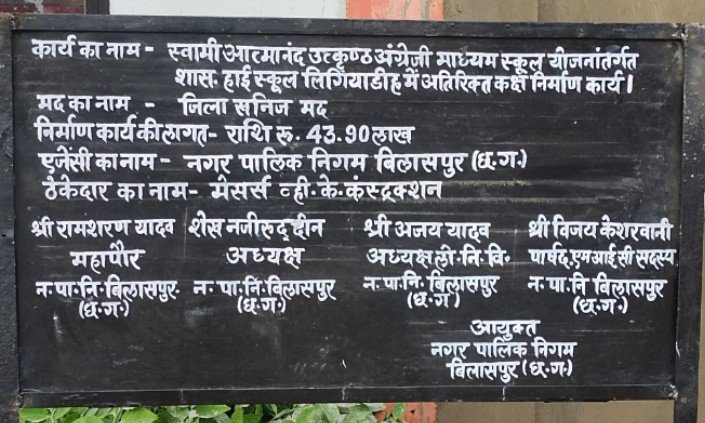 कार्य का नाम - स्वामी आत्मानंद उत्कृष्ठ अंग्रेजी माध्यम स्कूल योजनांतर्गत
शास. हाई स्कूल लिंगियाडीह में अतिरिक्त कक्ष निर्माण कार्य।
मद का नाम - जिला खनिज मद
निर्माण कार्य की लागत- राशि रू. 43.90 लाख
एजेंसी का नाम - नगर पालिक निगम बिलासपुर (छ.ग.)
ठेकेदार का नाम- मेसर्स व्ही.के. कंस्ट्रक्शन
श्री रामशरण यादव शेख नजीरुद्दीन श्री अजय यादव श्री विजय केशरवानी
महापौर अध्यक्ष अध्यक्ष लो.नि.वि. पार्षद, एमआईसी सदस्य
न.पा.नि. बिलासपुर. न.पा.नि. बिलासपुर न.पा.नि. बिलासपुर न.पा.नि बिलासपुर
(छ.ग.) (छ.ग.) (छ.ग) (छ.ग.)
आयुक्त
नगर पालिक निगम
बिलासपुर (छ.ग.)